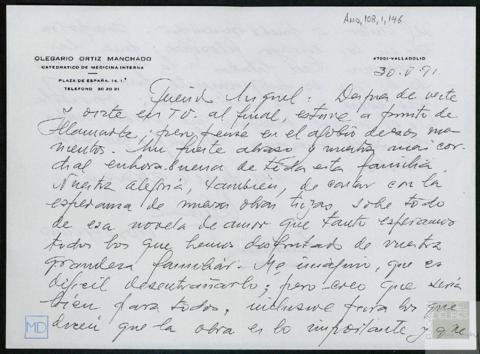 Ana, 108, 1, 146
OLEGARIO ORTIZ MANCHADO
CATEDRATICO DE MEDICINA INTERNA
PLAZA DE ESPAÑA,
TELEFONO 30 20 21
47001-VALLADOLID
30.V.91.
Querido Miguel. Después de verte
y oirte en TV. al final, estuve a punto de
llamarte, pero, pensé en el de esos mo-
mentos. Un fuerte abrazo y nuestra mas cor-
dial enhorabuena de toda esta familia.
Nuestra alegria, tambien, de contar con la
esperanza de unas otras, sobre todo
de esa novela de amor que tanto esperamos
todos los que hemos disfrutado de vuestra
grandeza familiar. Me imagino, que es
dificil desentrañarlo; pero creo que seria
bien para todos, inclusive para los que
dicen que la obra es lo importante y que
MD